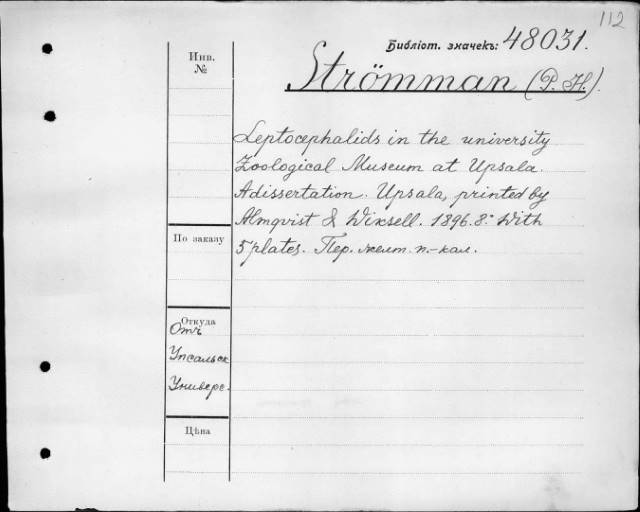 112
Библіот. значекъ: 48031.
Инв.
№
Strömman (P. H.).
Leptocephalids in the university
Zoological Museum at Upsala.
A dissertation. Upsala, printed by
Almqvist & Wiksell. 1896. 8.° With
5 plates. Пер. желт. п.-кал.
По заказу
Откуда
Отъ
Упсальск.
Универс.
Цѣна